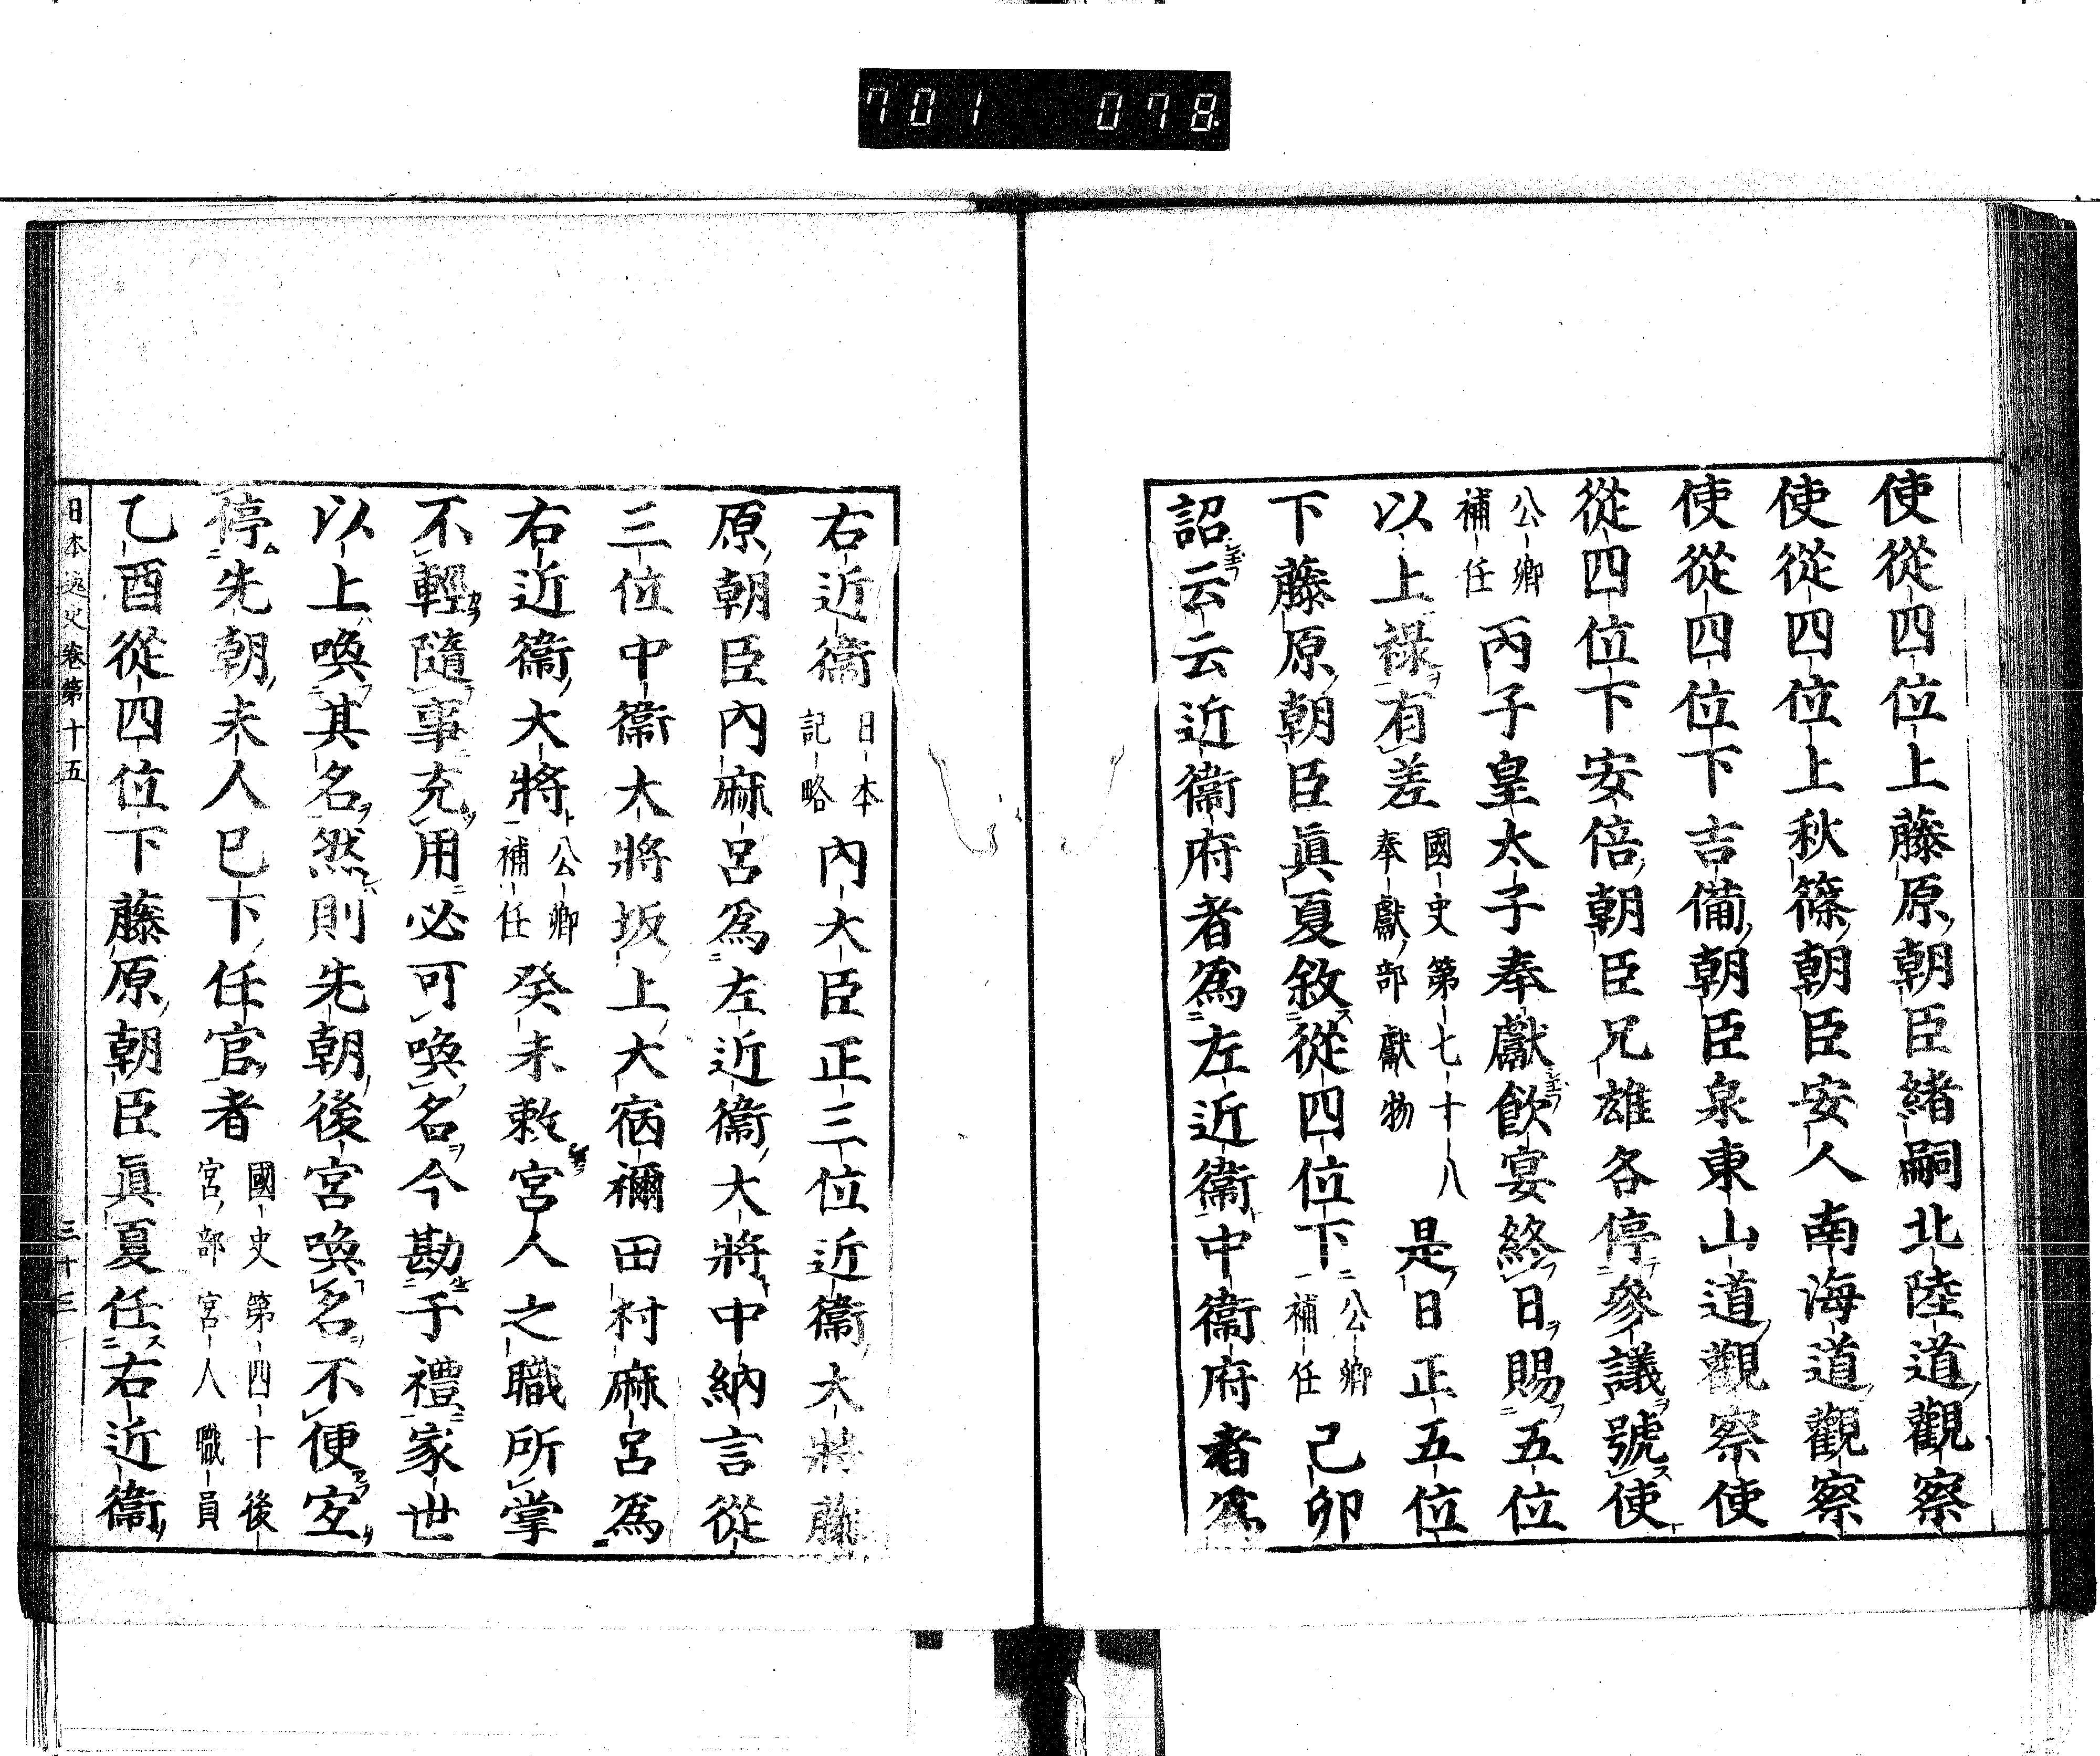 701 078.
使從四位上藤原朝臣緒嗣北陸道觀察
使從四位上秋篠朝臣安人南海道觀察
使從四位下吉備朝臣泉東山道觀察使
從四位下安倍朝臣兄雄各停參議號使
公卿補任丙子皇太子奉獻飮宴終日賜五位
以上祿有差國史第七十八奉獻部獻物是日正五位
下藤原朝臣眞夏敘從四位下公卿補任己卯
詔云云近衞府者爲左近衞中衞府者爲
右近衞日本記略內大臣正三位近衞大將藤
原朝臣內麻呂爲左近衞大將中納言從
三位中衞大將坂上大宿禰田村麻呂爲
右近衞大將公卿補任癸未敕宮人之職所掌
不輕隨事充用必可喚名今勘于禮家世
以上喚其名然則先朝後宮喚名不便宜
停先朝未人已下任官者國史第四十後宮部宮人職員
乙酉從四位下藤原朝臣眞夏任右近衞
日本逸史卷第十五 三十三